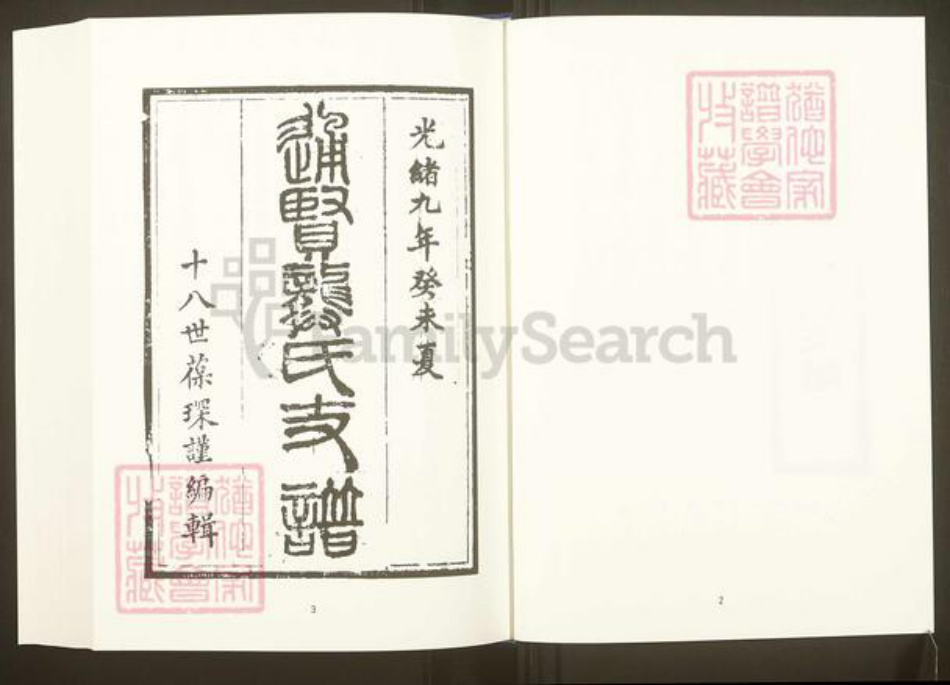 猶他家
譜學會
收藏
2
光緒九年癸未夏
通賢龔氏支譜
十八世葆琛謹編輯
猶他家
譜學會
收藏
3
FamilySearch